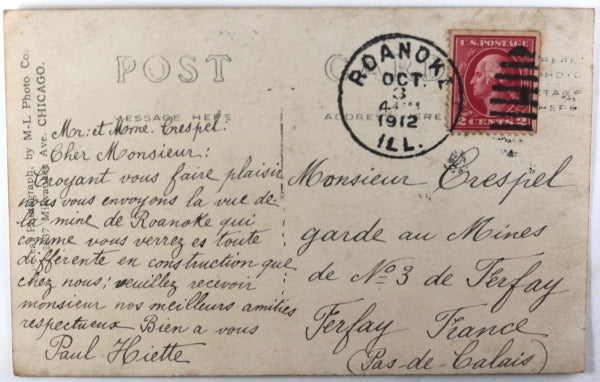 POST CARD
MESSAGE HERE
ADDRESS HERE
ROANOKE
OCT.
3
4 PM
1912
ILL.
U.S. POSTAGE
2 CENTS 2
REAL
PHOTO
STAMP
HERE
Photograph, by M-L Photo Co.
Ave. CHICAGO.
Mr. et Mme. Crespel.
Cher Monsieur:
Croyant vous faire plaisir
nous vous envoyons la vue de
la mine de Roanoke qui
comme vous verrez es toute
différente en construction que
chez nous; veuillez recevoir
monsieur nos meilleurs amitiés
respectueux Bien a vous
Paul Hiette
Monsieur Crespel
garde au Mines
de No 3 de Ferfay
Ferfay France
(Pas-de-Calais)